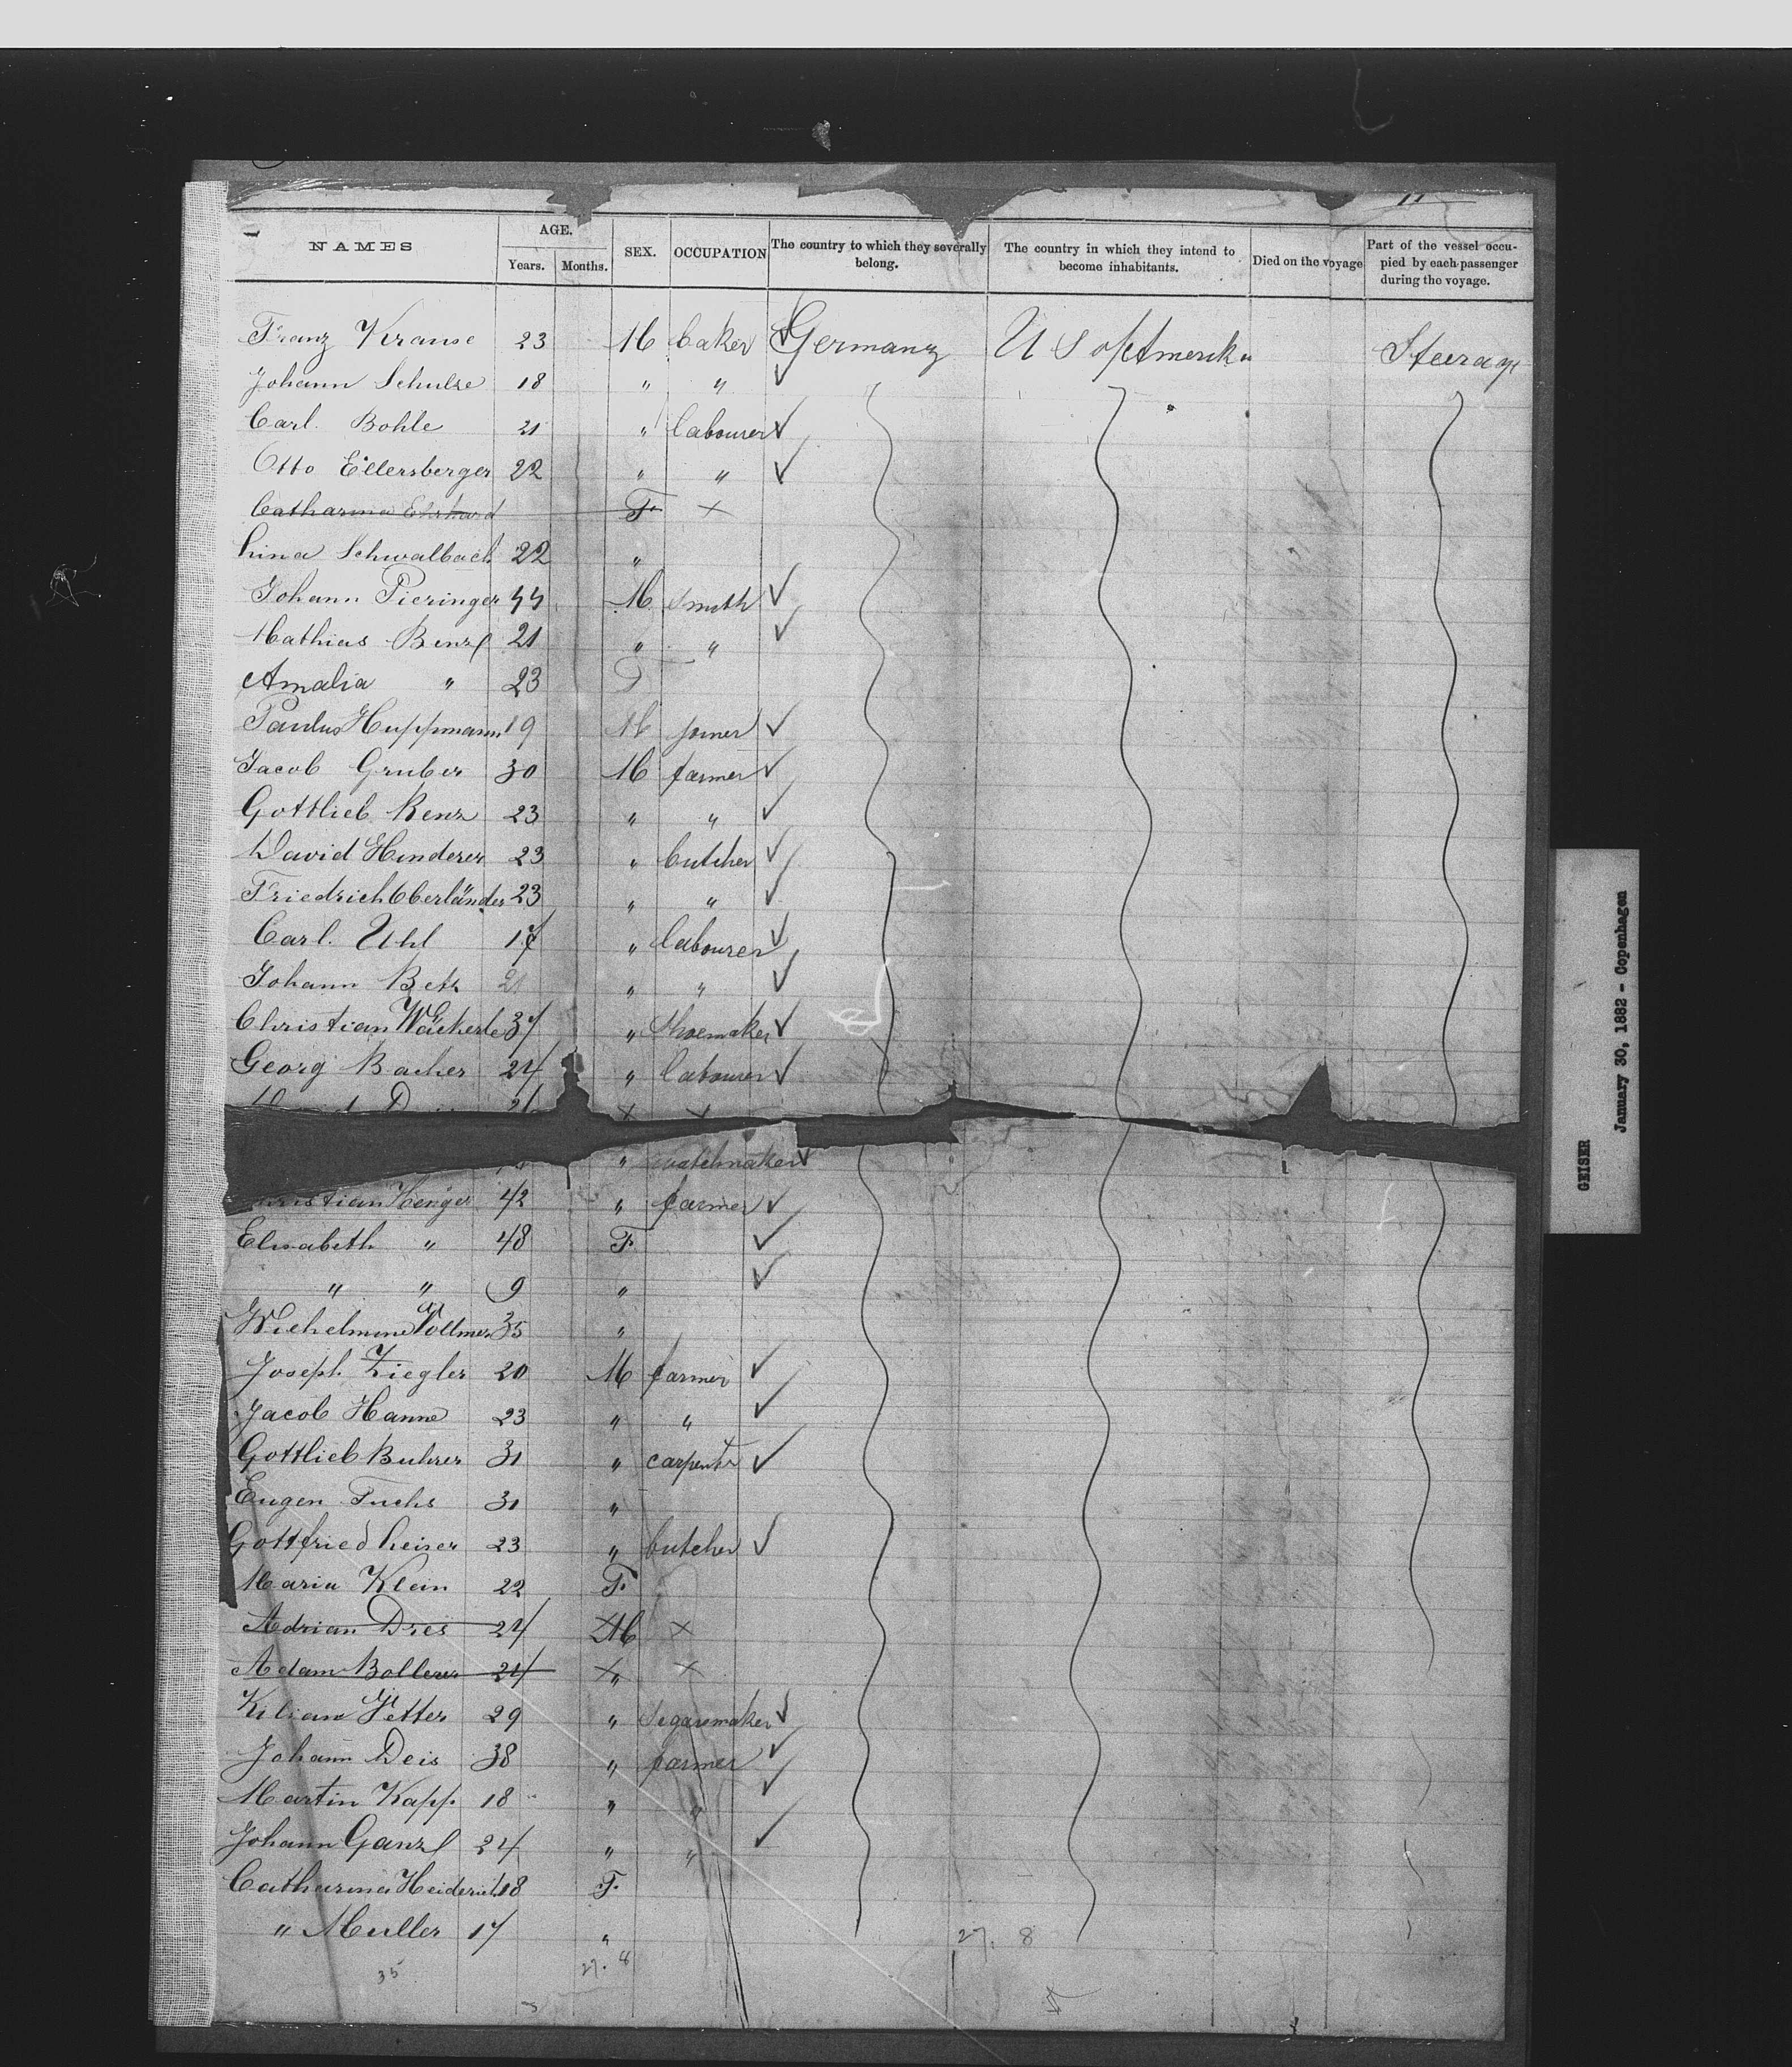 11
NAMES AGE. Years. Months. SEX. OCCUPATION The country to which they severally belong. The country in which they intend to become inhabitants. Died on the voyage Part of the vessel occupied by each passenger during the voyage.
Franz Krause 23 M baker Germany U S of Amerika Steerage
Johann Schulze 18 " "
Carl Bohle 21 " labourer
Otto Ellersberger 22 " "
Catharina Ehrhard F X
Lina Schwalbach 22 "
Johann Pieringer 44 M smith
Mathias Benzl 21 " "
Amalia " 23 F
Paulus Huppmann 19 M joiner
Jacob Gruber 30 M farmer
Gottlieb Renz 23 " "
David Hinderer 23 " butcher
Friedrich Oberländer 23 " "
Carl Uhl 17 " labourer
Johann Betz 21 " "
Christian Wäckerle 37 " Shoemaker
Georg Bacher 24 " labourer
21 X X
" watchmaker
Christian Henger 42 " farmer
Elisabeth " 48 F
" " 9 "
Wilhelmine Vollmer 35 "
Joseph Ziegler 20 M farmer
Jacob Hanne 23 " "
Gottlieb Buhrer 31 " carpenter
Eugen Fuchs 31 "
Gottfried Leiser 23 " butcher
Maria Klein 22 F
Adrian Dres 24 X M X
Adam Bollerer 24 X " X
Kilian Vetter 29 " Segaremaker
Johann Deis 38 " farmer
Martin Kapp 18 " "
Johann Ganzl 24 " "
Catharina Heiderich 18 F
" Muller 17 "
27. 8
35 27. 8
GEISER
January 30, 1882 - Copenhagen